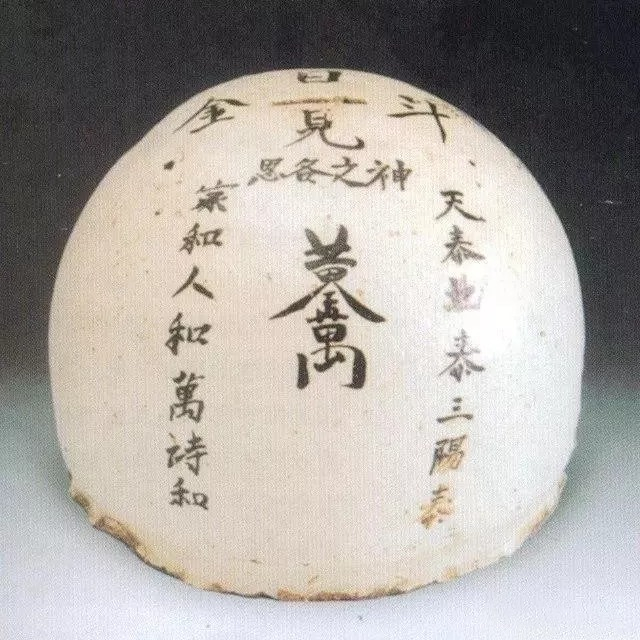 日
斗見全
神之各恩
天泰地泰三陽泰
黃金萬兩
和人和萬詩和